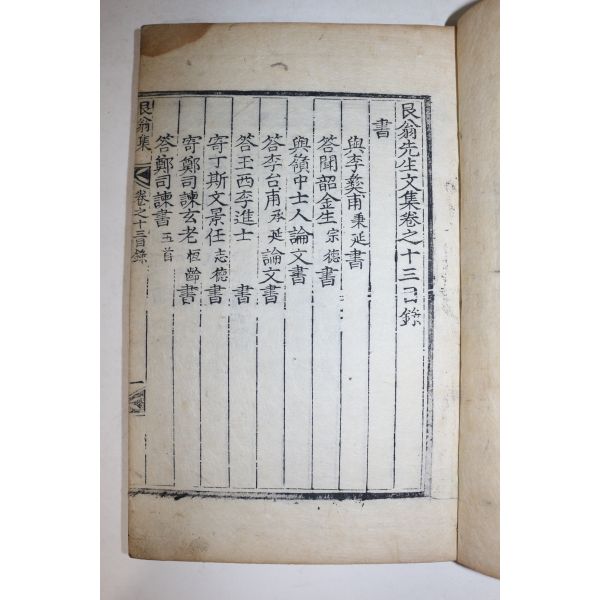 艮翁先生文集卷之十三目錄
書
與李彜甫秉延書
答聞韶金生宗德書
與嶺中士人論文書
答李台甫承延論文書
答玉西李進士書
寄丁斯文景任志德書
寄鄭司諫玄老恒齡書
答鄭司諫書五首
艮翁集 卷之十三目錄 一